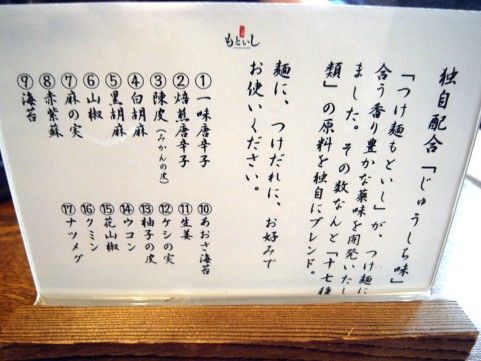 もといし
独自配合「じゅうしち味」
「つけ麺もといし」が、つけ麺に
合う香り豊かな薬味を開発いたし
ました。その数なんと「十七種
類」の原料を独自にブレンド。
麺に、つけだれに、お好みで
お使いください。
①一味唐辛子
②焙煎唐辛子
③陳皮(みかんの皮)
④白胡麻
⑤黒胡麻
⑥山椒
⑦麻の実
⑧赤紫蘇
⑨海苔
⑩あおさ海苔
⑪生姜
⑫ケシの実
⑬柚子の皮
⑭ウコン
⑮花山椒
⑯クミン
⑰ナツメグ